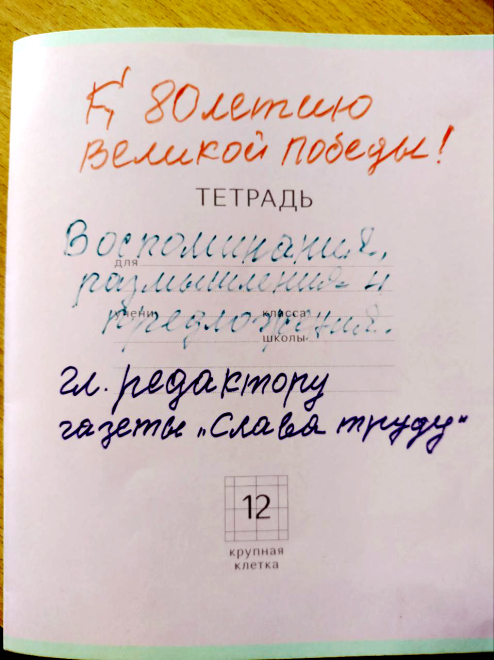 К 80летию
Великой Победы!
ТЕТРАДЬ
Воспоминания,
для
размышления и
учени класса
предложения.
школы
гл. редактору
газеты „Слава труду“
12
крупная
клетка